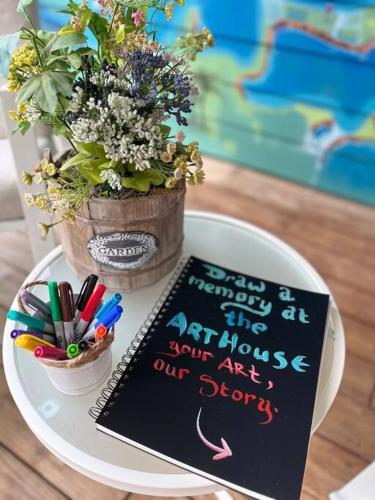 GARDEN
Draw a
memory at
the
ARTHOUSE
your ART,
our Story.